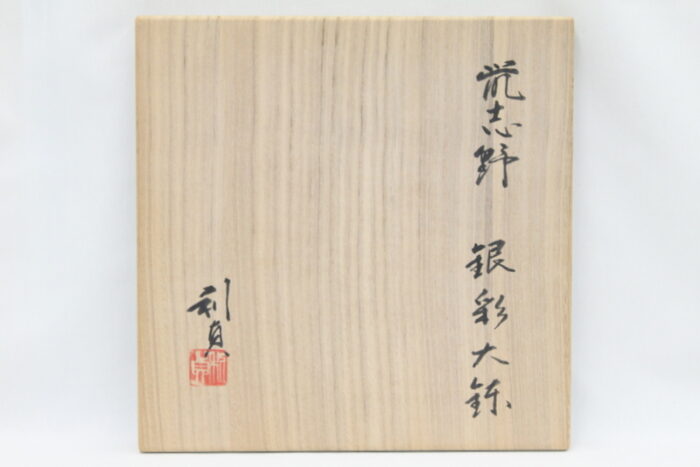 鼡志野 銀彩大鉢
利貞